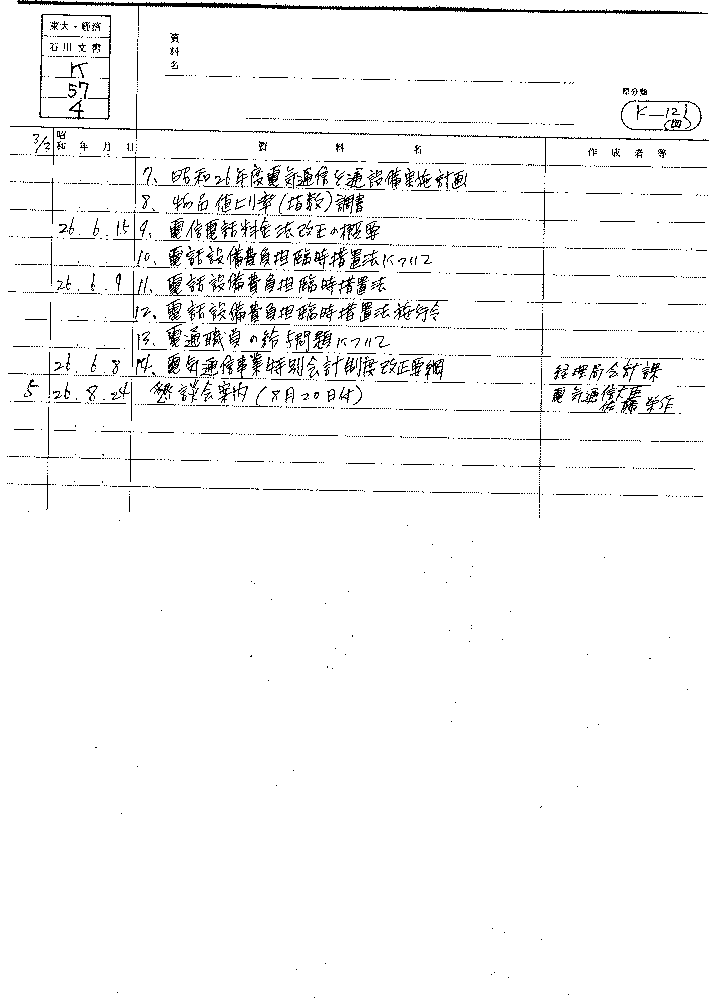 東大・経済
石川文書
K
57
4
資料名
原分類
K-121
(四)
3/2 昭和 年 月 日 資 料 名 作 成 者 等
7. 昭和26年度電気通信 通設備実施計画
8. 物自値上り率(指数)調書
26 6 15 9. 電信電話料金法改正の概要
10. 電話設備費負担臨時措置法について
26 6 9 11. 電話設備費負担臨時措置法
12. 電話設備費負担臨時措置法施行令
13. 電通職員の給与問題について
26 6 8 14. 電気通信事業特別会計制度改正要綱 経理局会計課
5 26 8 24 懇談会案内(8月20日付) 電気通信大臣
佐藤栄作